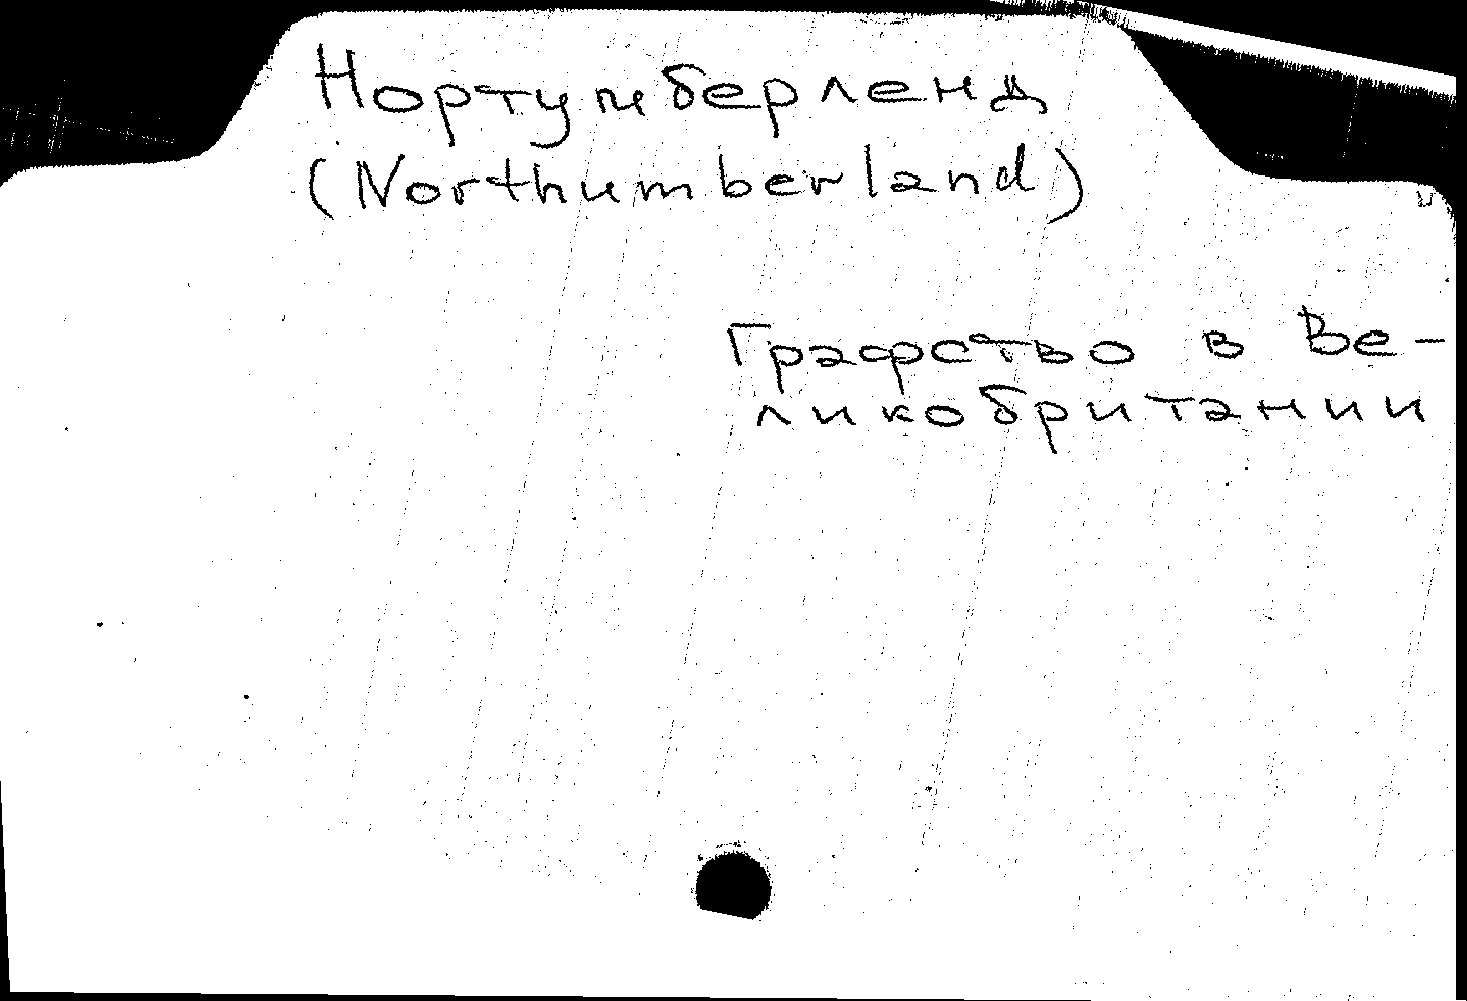 Нортумберленд
(Northumberland)
Графство в Ве-
ликобритании